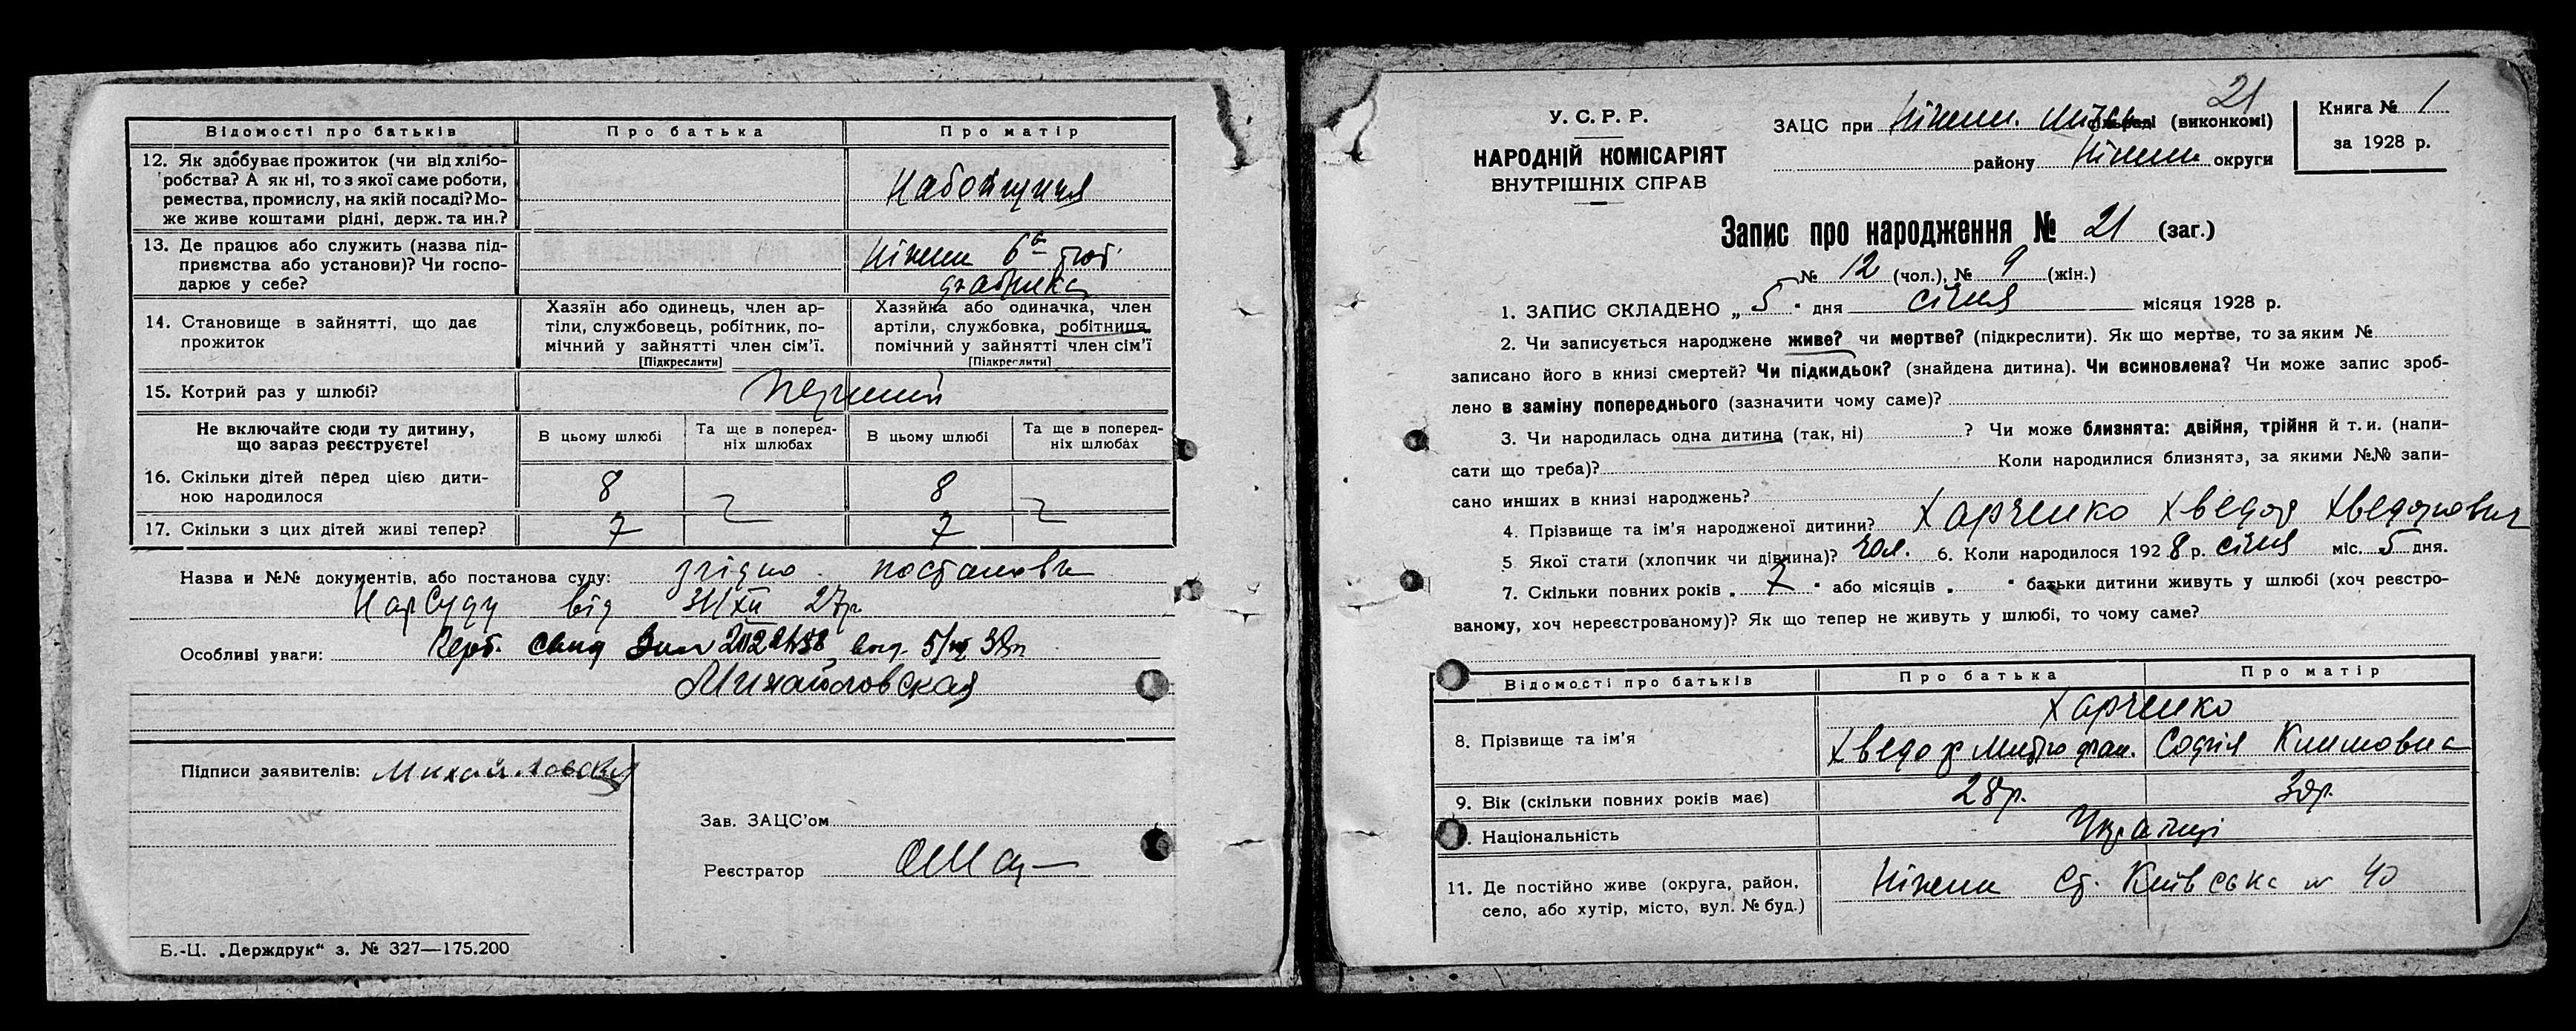 Відомості про батьків Про батька Про матір
12. Як здобуває прожиток (чи від хлібо-
робства? А як ні, то з якої саме роботи,
ремества, промислу, на якій посаді? Мо-
же живе коштами рідні, держ. та ин.?
Набойщиця
13. Де працює або служить (назва під-
приємства або установи)? Чи госпо-
дарює у себе?
Ніжин 6а тют.
фабрика
14. Становище в зайнятті, що дає
прожиток
Хазяїн або одинець, член ар-
тіли, службовець, робітник, по-
мічний у зайнятті член сім'ї.
[Підкреслити]
Хазяйка або одиначка, член
артіли, службовка, робітниця,
помічний у зайнятті член сім'ї
[Підкреслити]
15. Котрий раз у шлюбі? перший
Не включайте сюди ту дитину,
що зараз реєструєте!
В цьому шлюбі Та ще в поперед-
ніх шлюбах В цьому шлюбі Та ще в поперед-
ніх шлюбах
16. Скільки дітей перед цією дити-
ною народилося 8 8
17. Скільки з цих дітей живі тепер? 7 7
Назва и №№ документів, або постанова суду: згідно постанови
НарСуду від 27р.
Особливі уваги:
Михайловская
Підписи заявителів: Михайловская
Зав. ЗАЦС'ом
Реєстратор
Б.-Ц. „Держдрук“ з. № 327—175.200
21
У. С. Р. Р.
НАРОДНІЙ КОМІСАРІЯТ
ВНУТРІШНІХ СПРАВ
ЗАЦС при Ніжин. (виконкомі)
району Ніжин округи
Книга № 1
за 1928 р.
Запис про народження № 21 (заг.)
№ 12 (чол.), № 9 (жін.)
1. ЗАПИС СКЛАДЕНО „ 5 " дня січня місяця 1928 р.
2. Чи записується народжене живе? чи мертве? (підкреслити). Як що мертве, то за яким №
записано його в книзі смертей? Чи підкидьок? (знайдена дитина). Чи всиновлена? Чи може запис зроб-
лено в заміну попереднього (зазначити чому саме)?
3. Чи народилась одна дитина (так, ні) ? Чи може близнята: двійня, трійня й т. и. (напи-
сати що треба)? Коли народилися близнята, за якими №№ запи-
сано инших в книзі народжень?
4. Прізвище та ім'я народженої дитини? Харченко Хведор Хведорович
5. Якої стати (хлопчик чи дівчина)? чол. 6. Коли народилося 1928 р. січня міс. 5 дня.
7. Скільки повних років „ 7 " або місяців „ " батьки дитини живуть у шлюбі (хоч реєстро-
ваному, хоч нереєстрованому)? Як що тепер не живуть у шлюбі, то чому саме?
Відомості про батьків Про батька Про матір
Харченко
8. Прізвище та ім'я Хведор Митрофан. Софія Климовна
9. Вік (скільки повних років має) 28р. 30р.
Національність Українці
11. Де постійно живе (округа, район,
село, або хутір, місто, вул. № буд.)
Ніжин Ст. Київська № 40